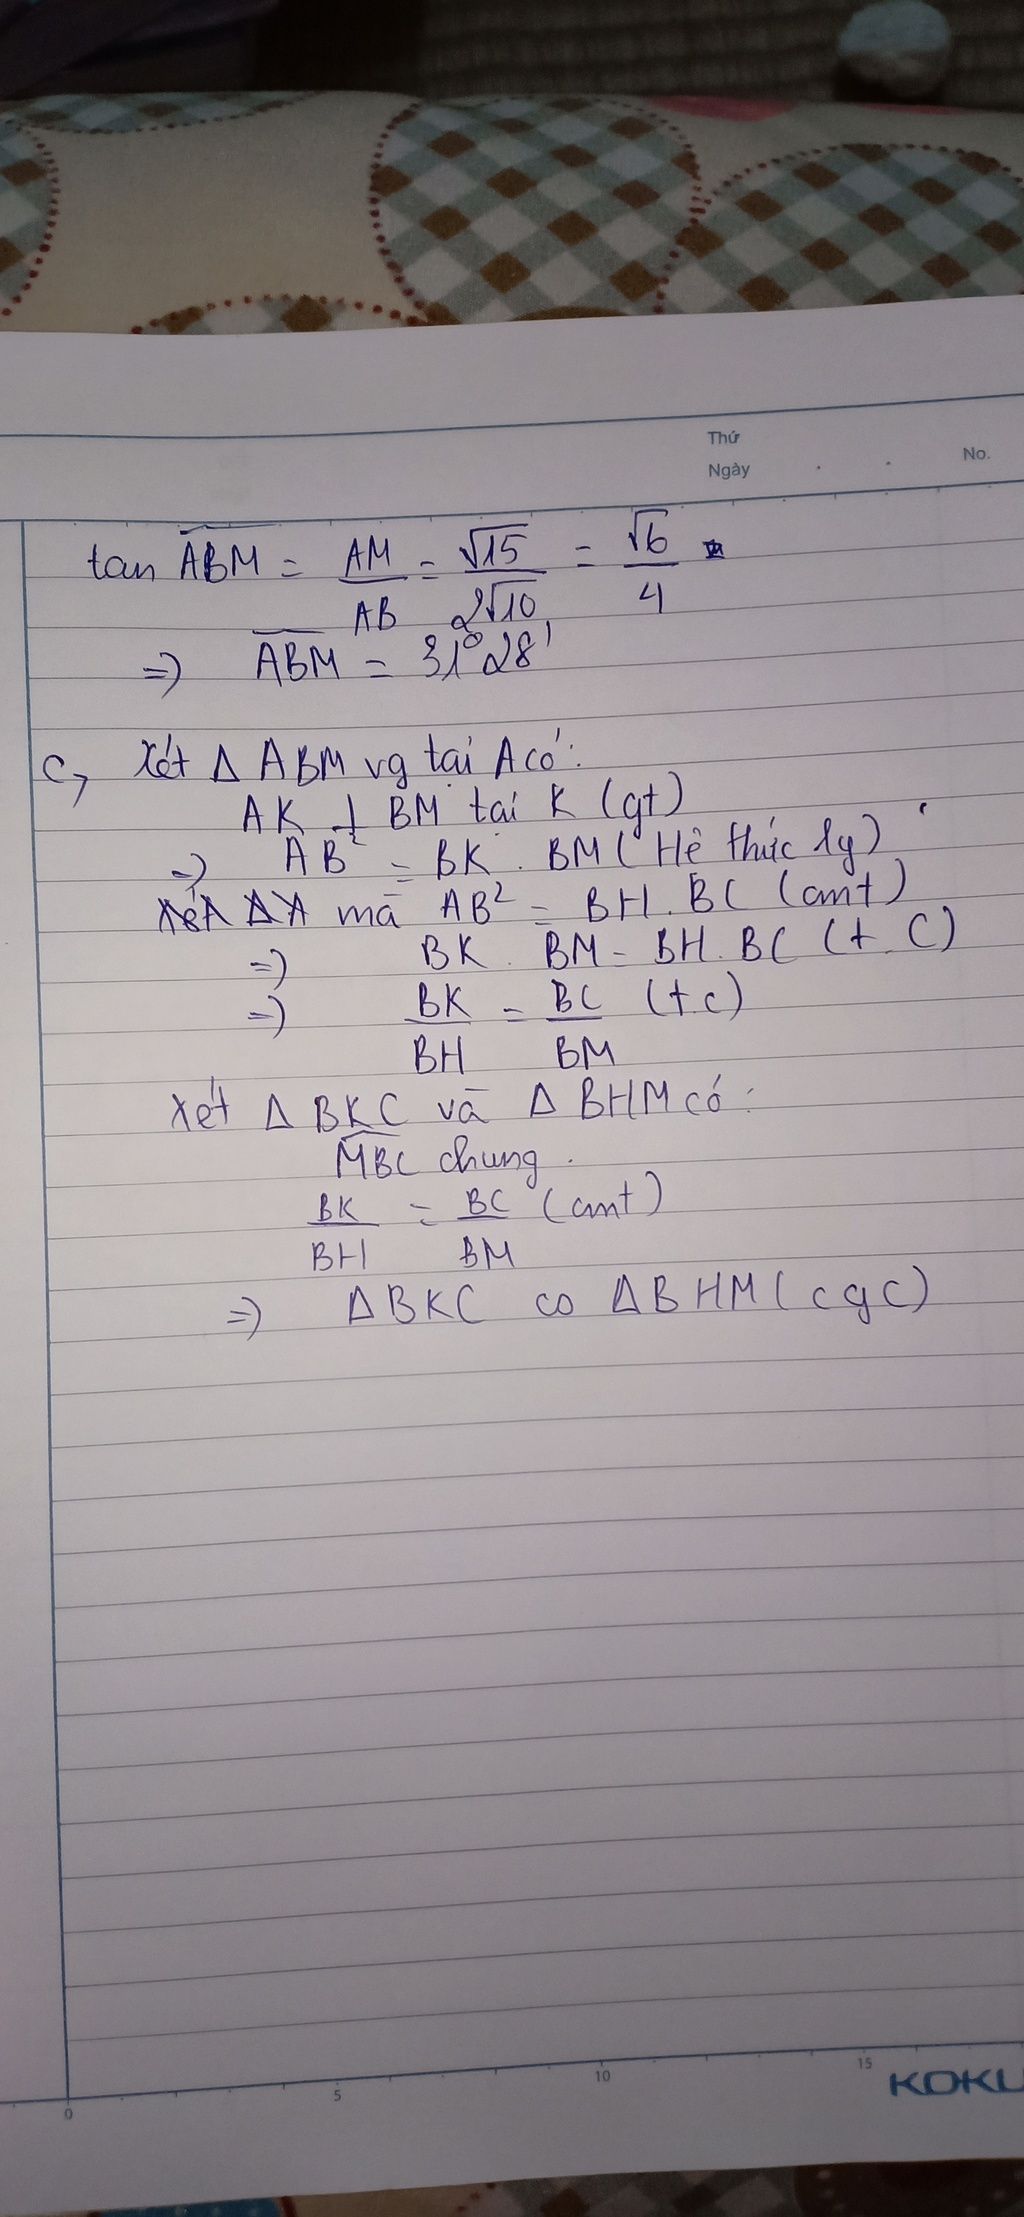 Thứ
Ngày . . No.
tan ABM = AM/AB = √15/2√10 = √6/4
=) ABM = 31°28'
c, Xét Δ ABM vg tại A có:
AK ⊥ BM tại K (gt)
=) AB² = BK . BM ( Hệ thức lg)
mà AB² = BH . BC (cmt)
=) BK . BM = BH . BC (t C)
=) BK/BH = BC/BM (t c)
Xét Δ BKC và Δ BHM có:
MBC chung .
BK/BH = BC/BM (cmt)
=) Δ BKC ∽ Δ BHM ( c g c)
0 5 10 15
KOKU